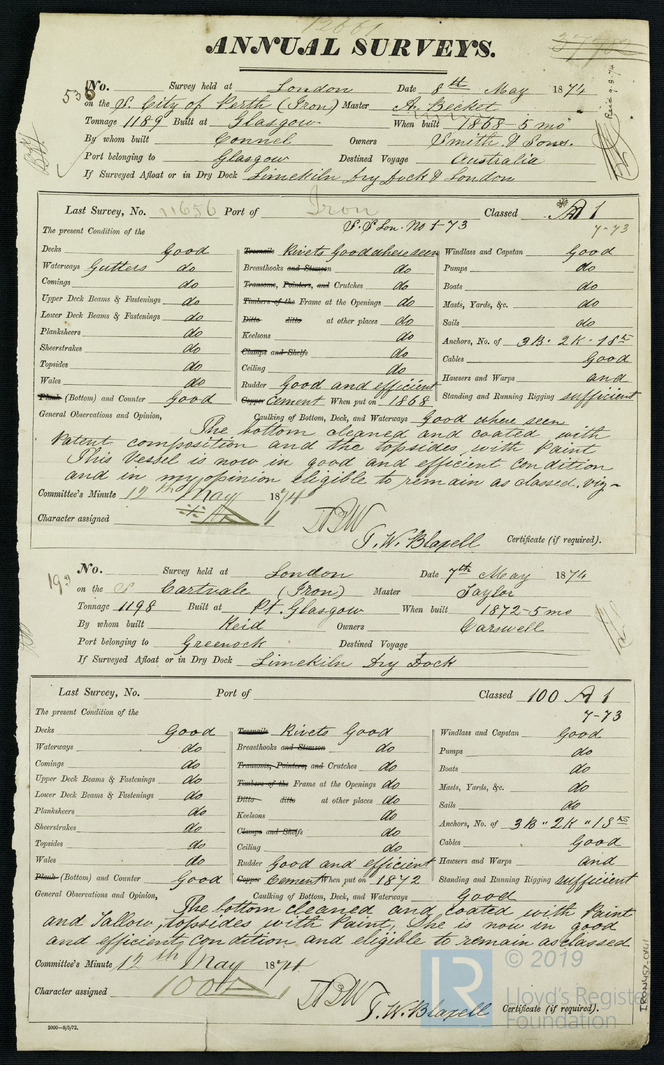 12661
ANNUAL SURVEYS.
No. 538 Survey held at London Date 8th May 1874
on the S. City of Perth (Iron) Master A. Becket
Tonnage 1189 Built at Glasgow When built 1868-5 mo
By whom built Connel Owners Smith & Sons.
Port belonging to Glasgow Destined Voyage Australia
If Surveyed Afloat or in Dry Dock Limekiln Dry Dock & London
Last Survey, No. 11656 Port of Iron Classed A 1
S.S Lon. No 1-73 7-73
The present Condition of the
Decks Good
Waterways Gutters do
Comings do
Upper Deck Beams & Fastenings do
Lower Deck Beams & Fastenings do
Planksheers do
Sheerstrakes do
Topsides do
Wales do
Plank (Bottom) and Counter Good
Treenails Rivets Good where seen
Breasthooks and Stemson do
Transoms, Pointers, and Crutches do
Timbers of the Frame at the Openings do
Ditto ditto at other places do
Keelsons do
Clamps and Shelfs do
Ceiling do
Rudder Good and efficient
Copper Cement When put on 1868
Windlass and Capstan Good
Pumps do
Boats do
Masts, Yards, &c. do
Sails do
Anchors, No. of 3B. 2K. 1St
Cables Good
Hawsers and Warps and
Standing and Running Rigging sufficient
General Observations and Opinion, Caulking of Bottom, Deck, and Waterways Good where seen
The bottom cleaned and coated with
Patent composition and the topsides with Paint
This Vessel is now in good and efficient condition
and in my opinion eligible to remain as classed. viz-
Committee's Minute 12th May 1874
Character assigned
T. W. Blaxell Certificate (if required).
No. 193 Survey held at London Date 7th May 1874
on the S Cartvale (Iron) Master Taylor
Tonnage 1198 Built at Pt. Glasgow When built 1872-5 mo
By whom built Reid Owners Carswell
Port belonging to Greenock Destined Voyage
If Surveyed Afloat or in Dry Dock Limekiln Dry Dock
Last Survey, No. Port of Classed 100 A 1
7-73
The present Condition of the
Decks Good
Waterways do
Comings do
Upper Deck Beams & Fastenings do
Lower Deck Beams & Fastenings do
Planksheers do
Sheerstrakes do
Topsides do
Wales do
Plank (Bottom) and Counter Good
Treenails Rivets Good
Breasthooks and Stemson do
Transoms, Pointers, and Crutches do
Timbers of the Frame at the Openings do
Ditto ditto at other places do
Keelsons do
Clamps and Shelfs do
Ceiling do
Rudder Good and efficient
Copper Cement When put on 1872
Windlass and Capstan Good
Pumps do
Boats do
Masts, Yards, &c. do
Sails do
Anchors, No. of 3B" 2K" 1St
Cables Good
Hawsers and Warps and
Standing and Running Rigging sufficient
General Observations and Opinion, Caulking of Bottom, Deck, and Waterways Good
The bottom cleaned and coated with Paint
and Tallow, topsides with Paint, She is now in good
and efficient condition and eligible to remain as classed
Committee's Minute 12th May 1874
Character assigned 100A
T. W. Blaxell Certificate (if required).
2000—8/2/72.
LR © 2019
Lloyd's Register
Foundation